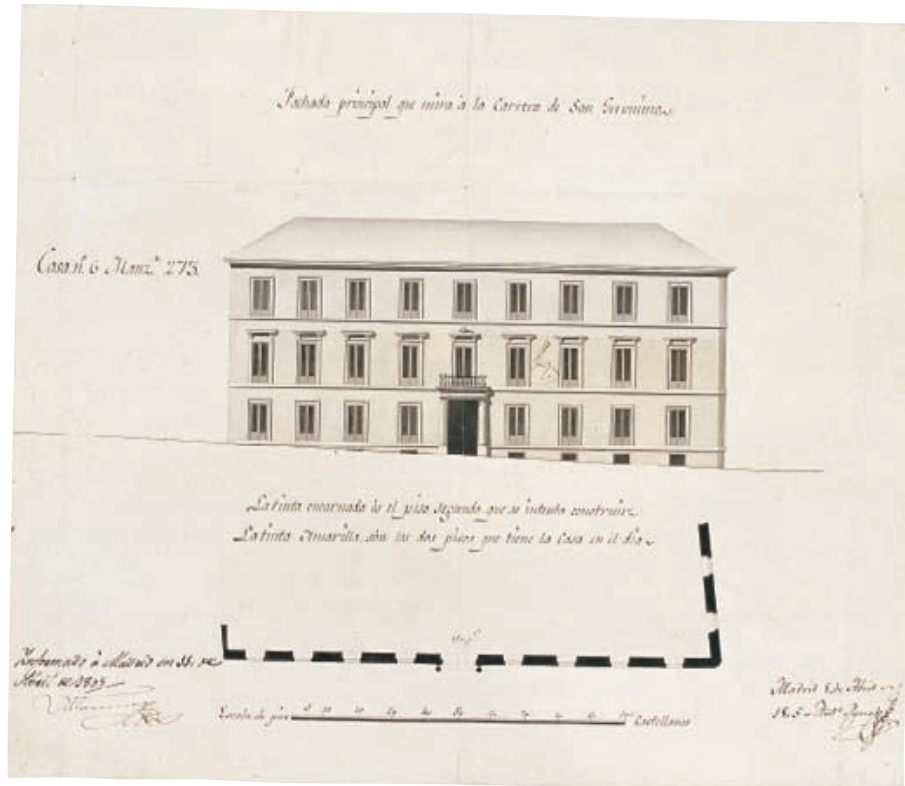 Fachada principal que mira à la Carrera de San Geronimo
Casa nº 6 Manzª 273.
La tinta encarnada es el piso segundo que se intenta construir
La tinta Amarilla, son los dos pisos que tiene la Casa en el dia
Informado à Madrid en 11 de
Abril de
Madrid 8 de Abril
Escala de pies Castellanos